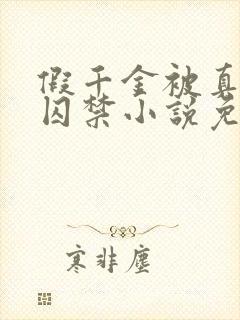 假千金被真
囚禁小説免
寒非塵